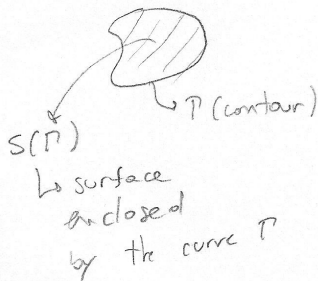 Γ (contour)
S(Γ)
↳ surface
enclosed
by the curve Γ